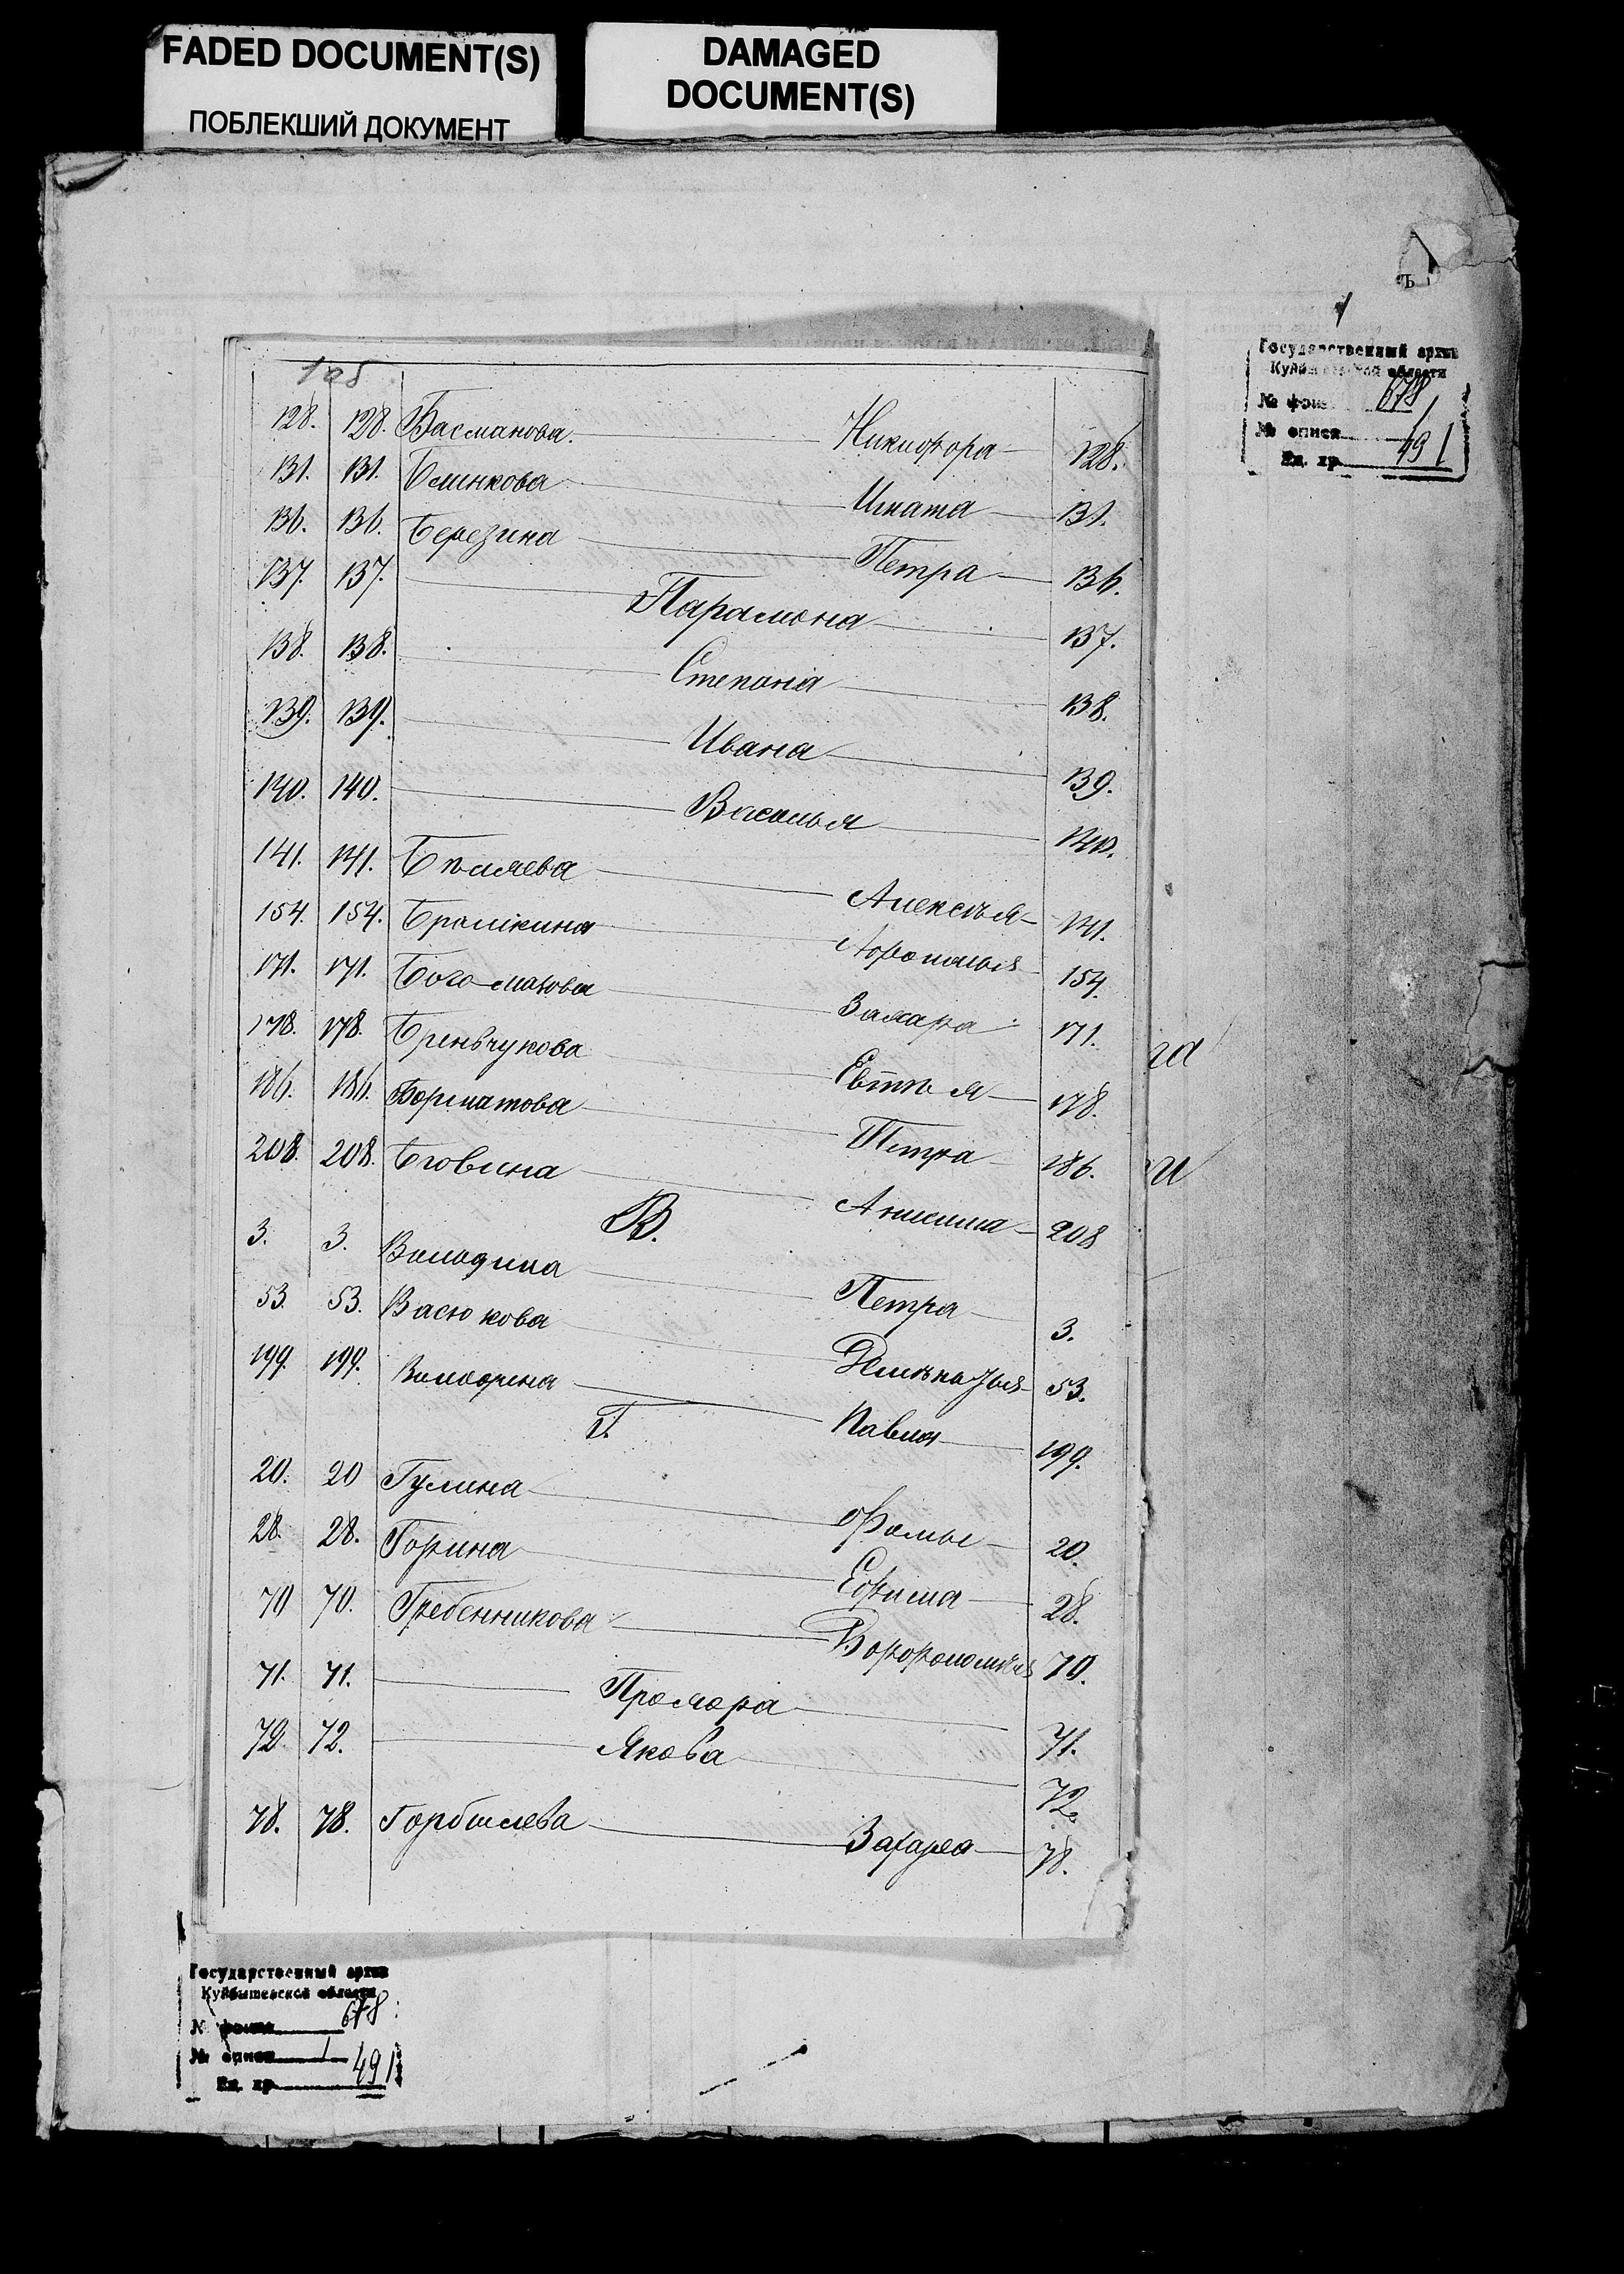 FADED DOCUMENT(S)
ПОБЛЕКШИЙ ДОКУМЕНТ
DAMAGED
DOCUMENT(S)
ъ
1
Государственный архив
Куйбышевской области
№ фонда 678
№ описи 1
Ед. хр. 491
1об
128. 128. Басманова. Никифора 128.
131. 131. Блинкова Игната 131.
136. 136. Березина Петра 136.
137. 137. Парамона 137.
138. 138. Степана 138.
139. 139. Ивана 139.
140. 140. Василья 140.
141. 141. Бѣляева Алексѣя 141.
154. 154. 154.
171. 171. Богомазова Захара 171.
178. 178. Бреньчукова Евтѣя 178.
186. 186. Борматова Петра 186.
208. 208. Анисима 208
В.
3. 3. Володина Петра 3.
53. 53. Васюкова 53.
199. 199. Володина Павла 199.
Г.
20. 20 Гулина Фомы 20.
28. 28. Горина Ефима 28.
70 70. Гребенникова 70.
71. 71. Прохора 71.
72. 72. Якова 72.
78. 78. Горбылева Захара 78.
га
и
Государственный архив
Куйбышевской области
№ фонда 678
№ описи 1
Ед. хр. 491